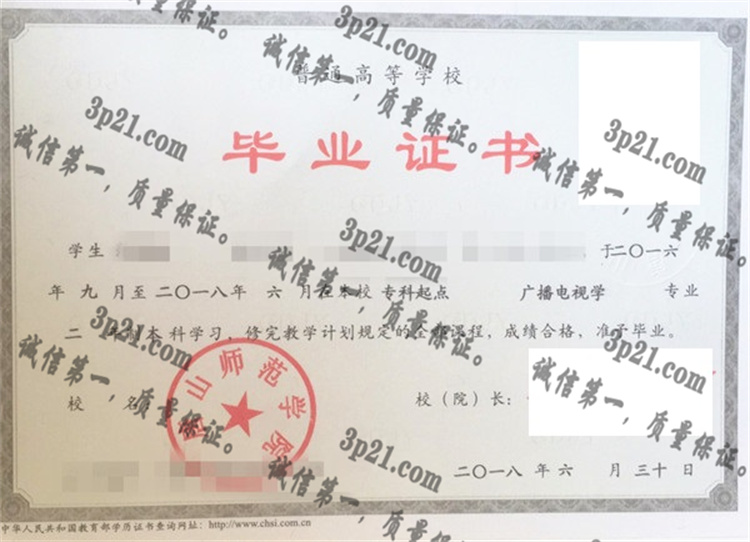 普通高等学校
毕业证书
学生 于二〇一六
年 九 月至 二〇一八年 六 月在本校 专科起点 广播电视学 专业
二 年制本 科学习,修完教学计划规定的全部课程,成绩合格,准予毕业。
山师范学院
校 名: 校(院)长:
二〇一八 年 六 月 三十 日
中华人民共和国教育部学历证书查询网址:http://www.chsi.com.cn
3p21.com
诚信第一,质量保证。
3p21.com
诚信第一,质量保证。
3p21.com
诚信第一,质量保证。
3p21.com
诚信第一,质量保证。
3p21.com
诚信第一,质量保证。
3p21.com
诚信第一,质量保证。
3p21.com
诚信第一,质量保证。
3p21.com
诚信第一,质量保证。